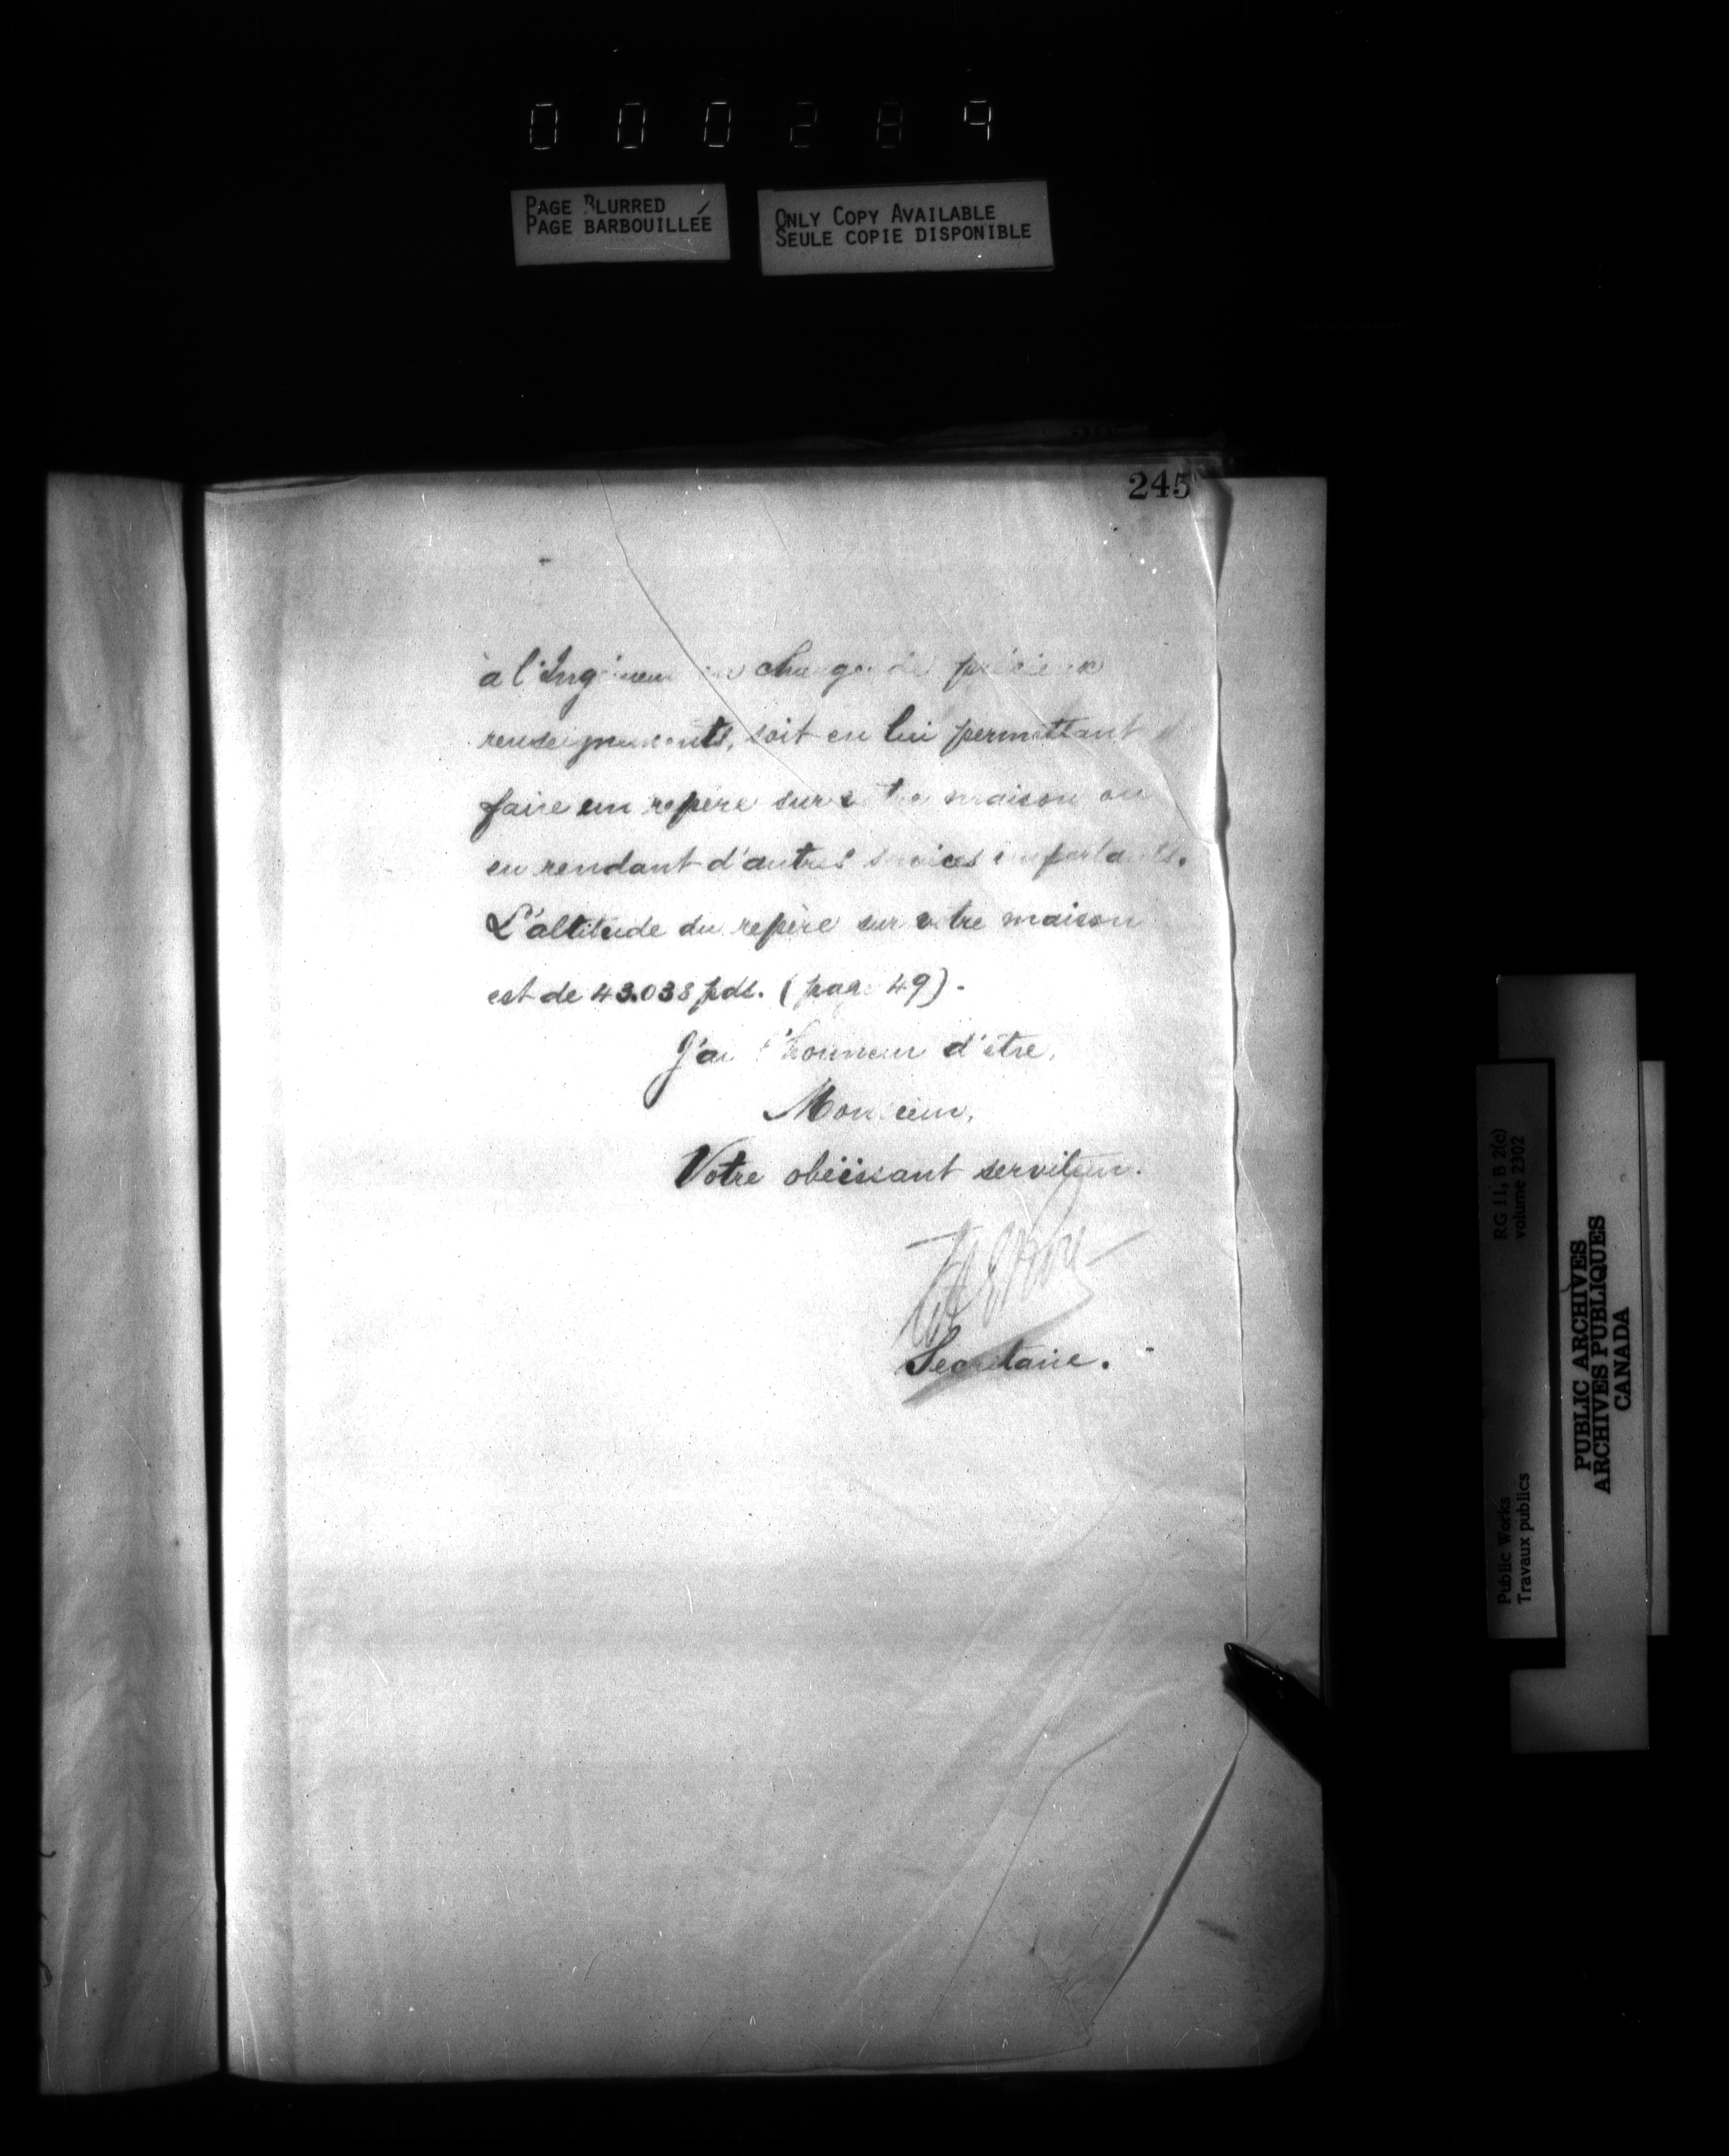 000289
PAGE BLURRED
PAGE BARBOUILLÉE
ONLY COPY AVAILABLE
SEULE COPIE DISPONIBLE
245
à l'Ingénieur en charge de précieux
renseignements, soit en lui permettant d
faire un repère sur votre maison ou
en rendant d'autres services importants.
L'altitude du repère sur votre maison
est de 43.038 pds. (page 49).
J'ai l'honneur d'être,
Monsieur,
Votre obéissant serviteur.
Secrétaire.
RG 11, B 2(e)
volume 2302
Public Works
Travaux publics
PUBLIC ARCHIVES
ARCHIVES PUBLIQUES
CANADA